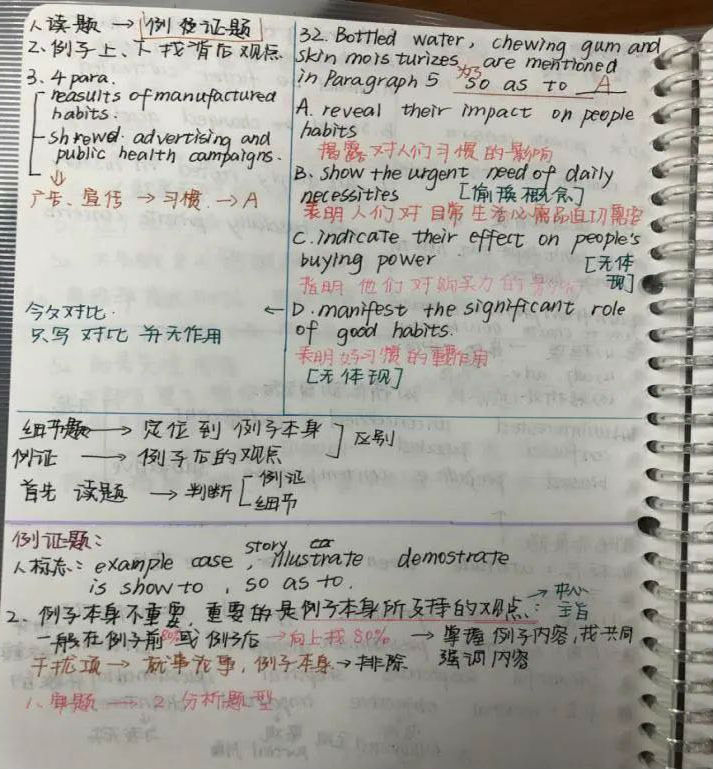 1.读题 → 例证题
2.例子上、下找背后观点
3. 4 para.
reasults of manufactured
habits.
shrewd. advertising and
public health campaigns.
广告、宣传 → 习惯 → A
今夕对比.
只写 对比 并无作用
32. Bottled water, chewing gum and
skin mois turizes are mentioned
in Paragraph 5 so as to A
A. reveal their impact on people
habits
揭露对人们习惯的影响
B. show the urgent need of daily
necessities [偷换概念]
表明人们对日常生活必需品迫切需要
C. indicate their effect on people's
buying power [无体
现]
指明 他们 对购买力的影响
← D. manifest the significant role
of good habits.
表明好习惯的重要作用
[无体现]
细节题 → 定位到 例子本身 ] 区别
例证 → 例子后的观点
首先 读题 → 判断 [ 例证
细节
例证题:
story
1.标志: example case, illustrate demostrate
is show to, so as to.
2. 例子本身不重要, 重要的是例子本身所支持的观点: → 中心
主旨
一般在例子前或例子后 → 向上找 80% → 掌握例子内容,找共同
强调内容
干扰项 → 就事论事,例子本身 → 排除
1、审题 → 2 分析题型